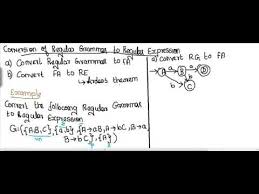 Conversion of Regular Grammar to Regular Expression
a) Convert Regular Grammar to FA
b) Convert FA to RE
→ Arden's theorem
Example
Convert the following Regular Grammar
to Regular Expression
G=({A,B,C},{a,b},{A→aB,A→bC,B→a
B→bC},{A})
a) convert RG to FA
A a B a D
b b
C